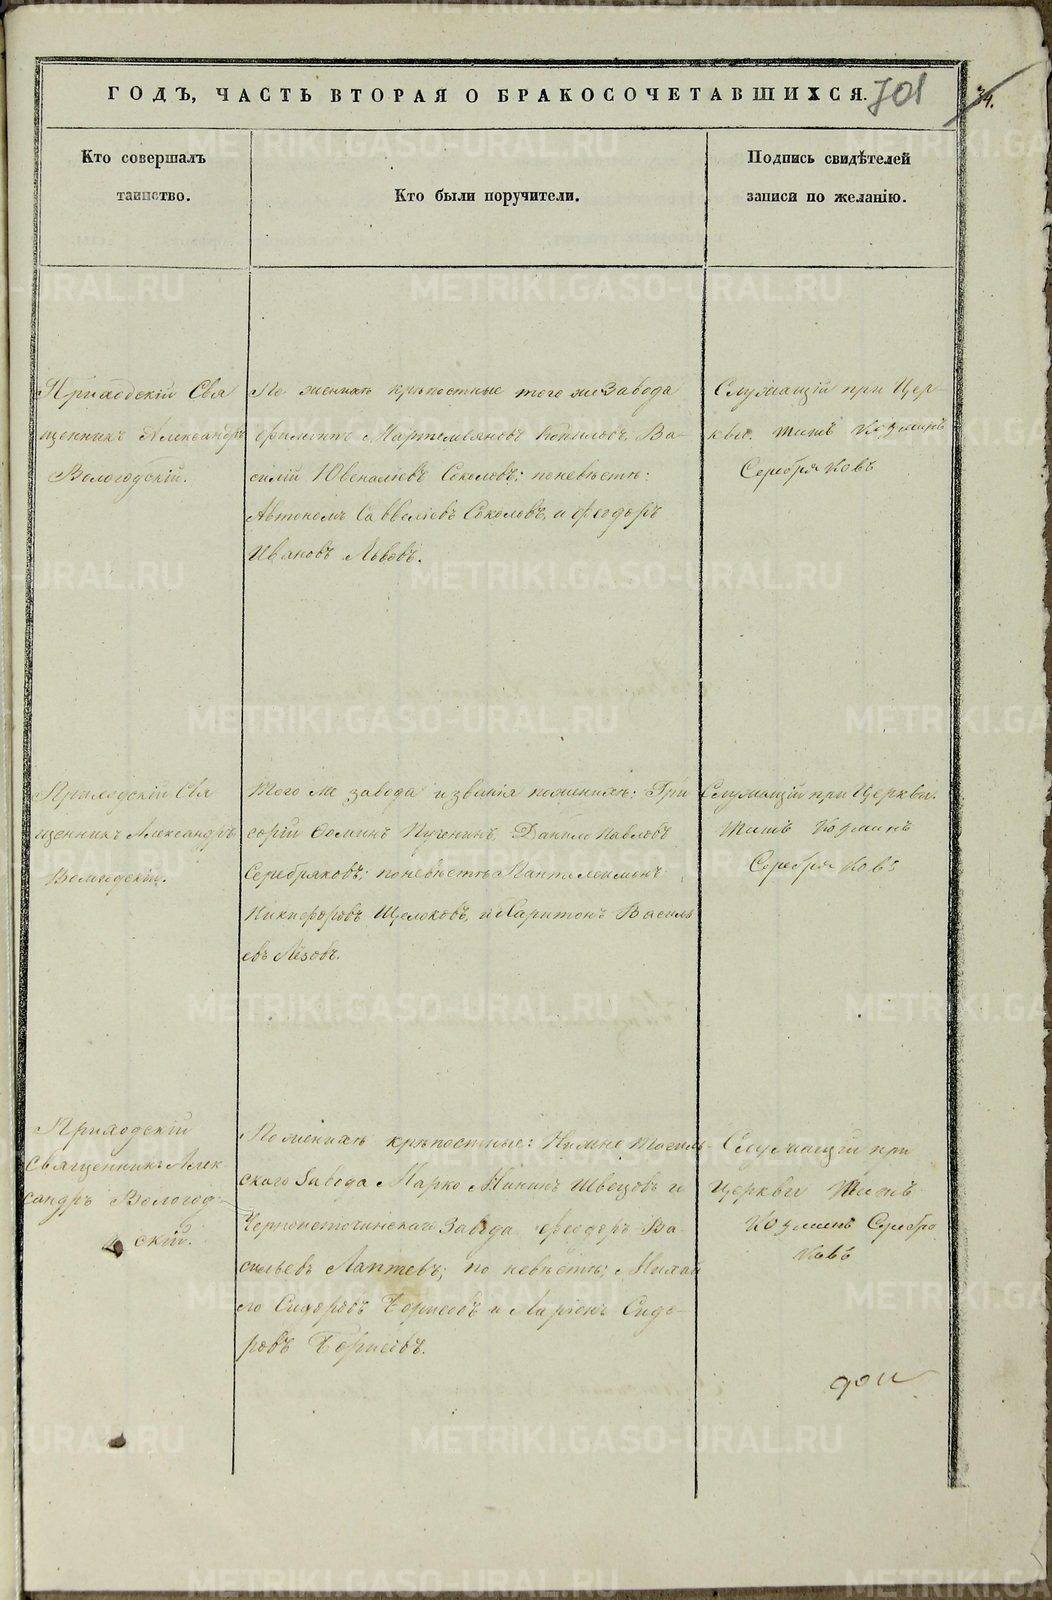 ГОДЪ, ЧАСТЬ ВТОРАЯ О БРАКОСОЧЕТАВШИХСЯ. 701
Кто совершалъ
таинство.
Кто были поручители.
Подпись свидѣтелей
записи по желанію.
Приходскій Свя
щенникъ Александръ
Вологодскій.
По женихѣ крѣпостные того же Завода
Мартемьяновъ Копыловъ, Ва-
силій Ювеналіевъ Соколовъ; по невѣстѣ:
Автономъ Савеліевъ Соколовъ, и Ѳеодоръ
Ивановъ Львовъ.
Служащій при Цер-
кви. Титъ Козминъ
Серебряковъ
Приходскій Свя
щенникъ Александръ
Вологодскій.
Того же завода и званія по женихѣ: Гри
горій Ѳоминъ Данило Павловъ
Серебряковъ; по невѣстѣ Панталеимонъ
Никифоровъ Щелоковъ, и Харитонъ Василь
евъ Лѣзовъ.
Служащій при Церкви.
Титъ Козминъ
Серебряковъ
Приходскій
Священникъ Алек
сандръ Вологод-
скій.
По женихѣ крѣпостные: Нижне Тагиль-
скаго Завода Марко Мининъ Швецовъ и
Черноисточинскаго Завода Ѳеодоръ Ва-
сильевъ Лаптевъ; по невѣстѣ; Михай
ло Сидоровъ и Ларіонъ Сидо-
ровъ
Служащій при
Церкви Титъ
Козминъ Серебря
ковъ
METRIKI.GASO-URAL.RU